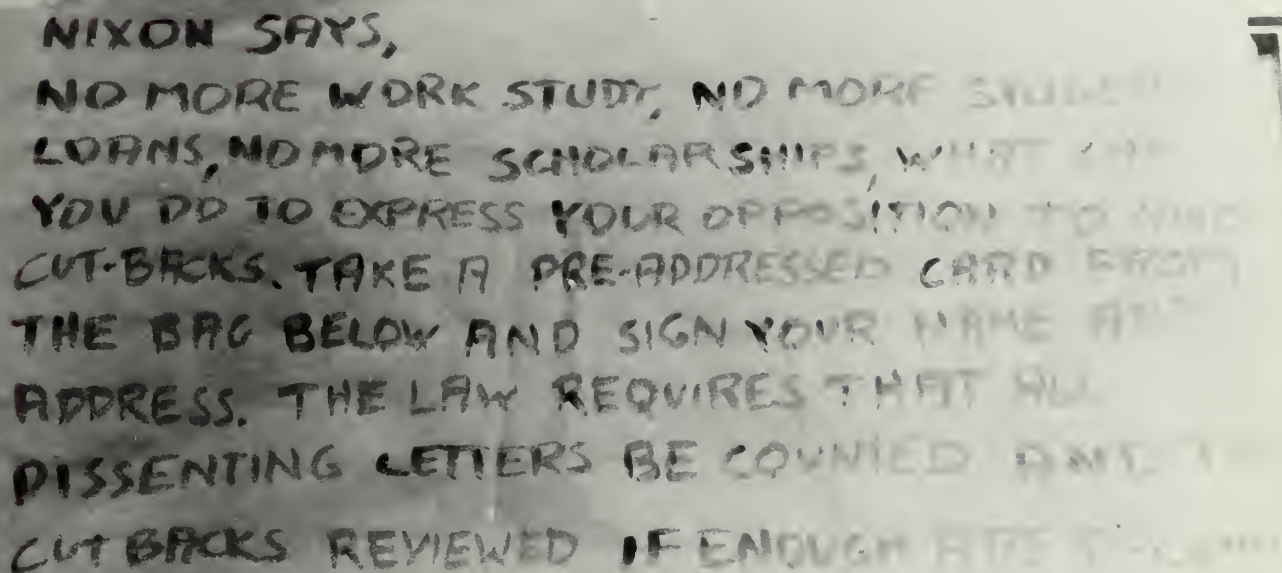 NIXON SAYS,
NO MORE WORK STUDY, NO MORE STUDENT
LOANS, NO MORE SCHOLARSHIPS, WHAT CAN
YOU DO TO EXPRESS YOUR OPPOSITION TO
CUT-BACKS. TAKE A PRE-ADDRESSED CARD FROM
THE BAG BELOW AND SIGN YOUR NAME AND
ADDRESS. THE LAW REQUIRES THAT ALL
DISSENTING LETTERS BE COUNTED AND
CUT BACKS REVIEWED IF ENOUGH ARE